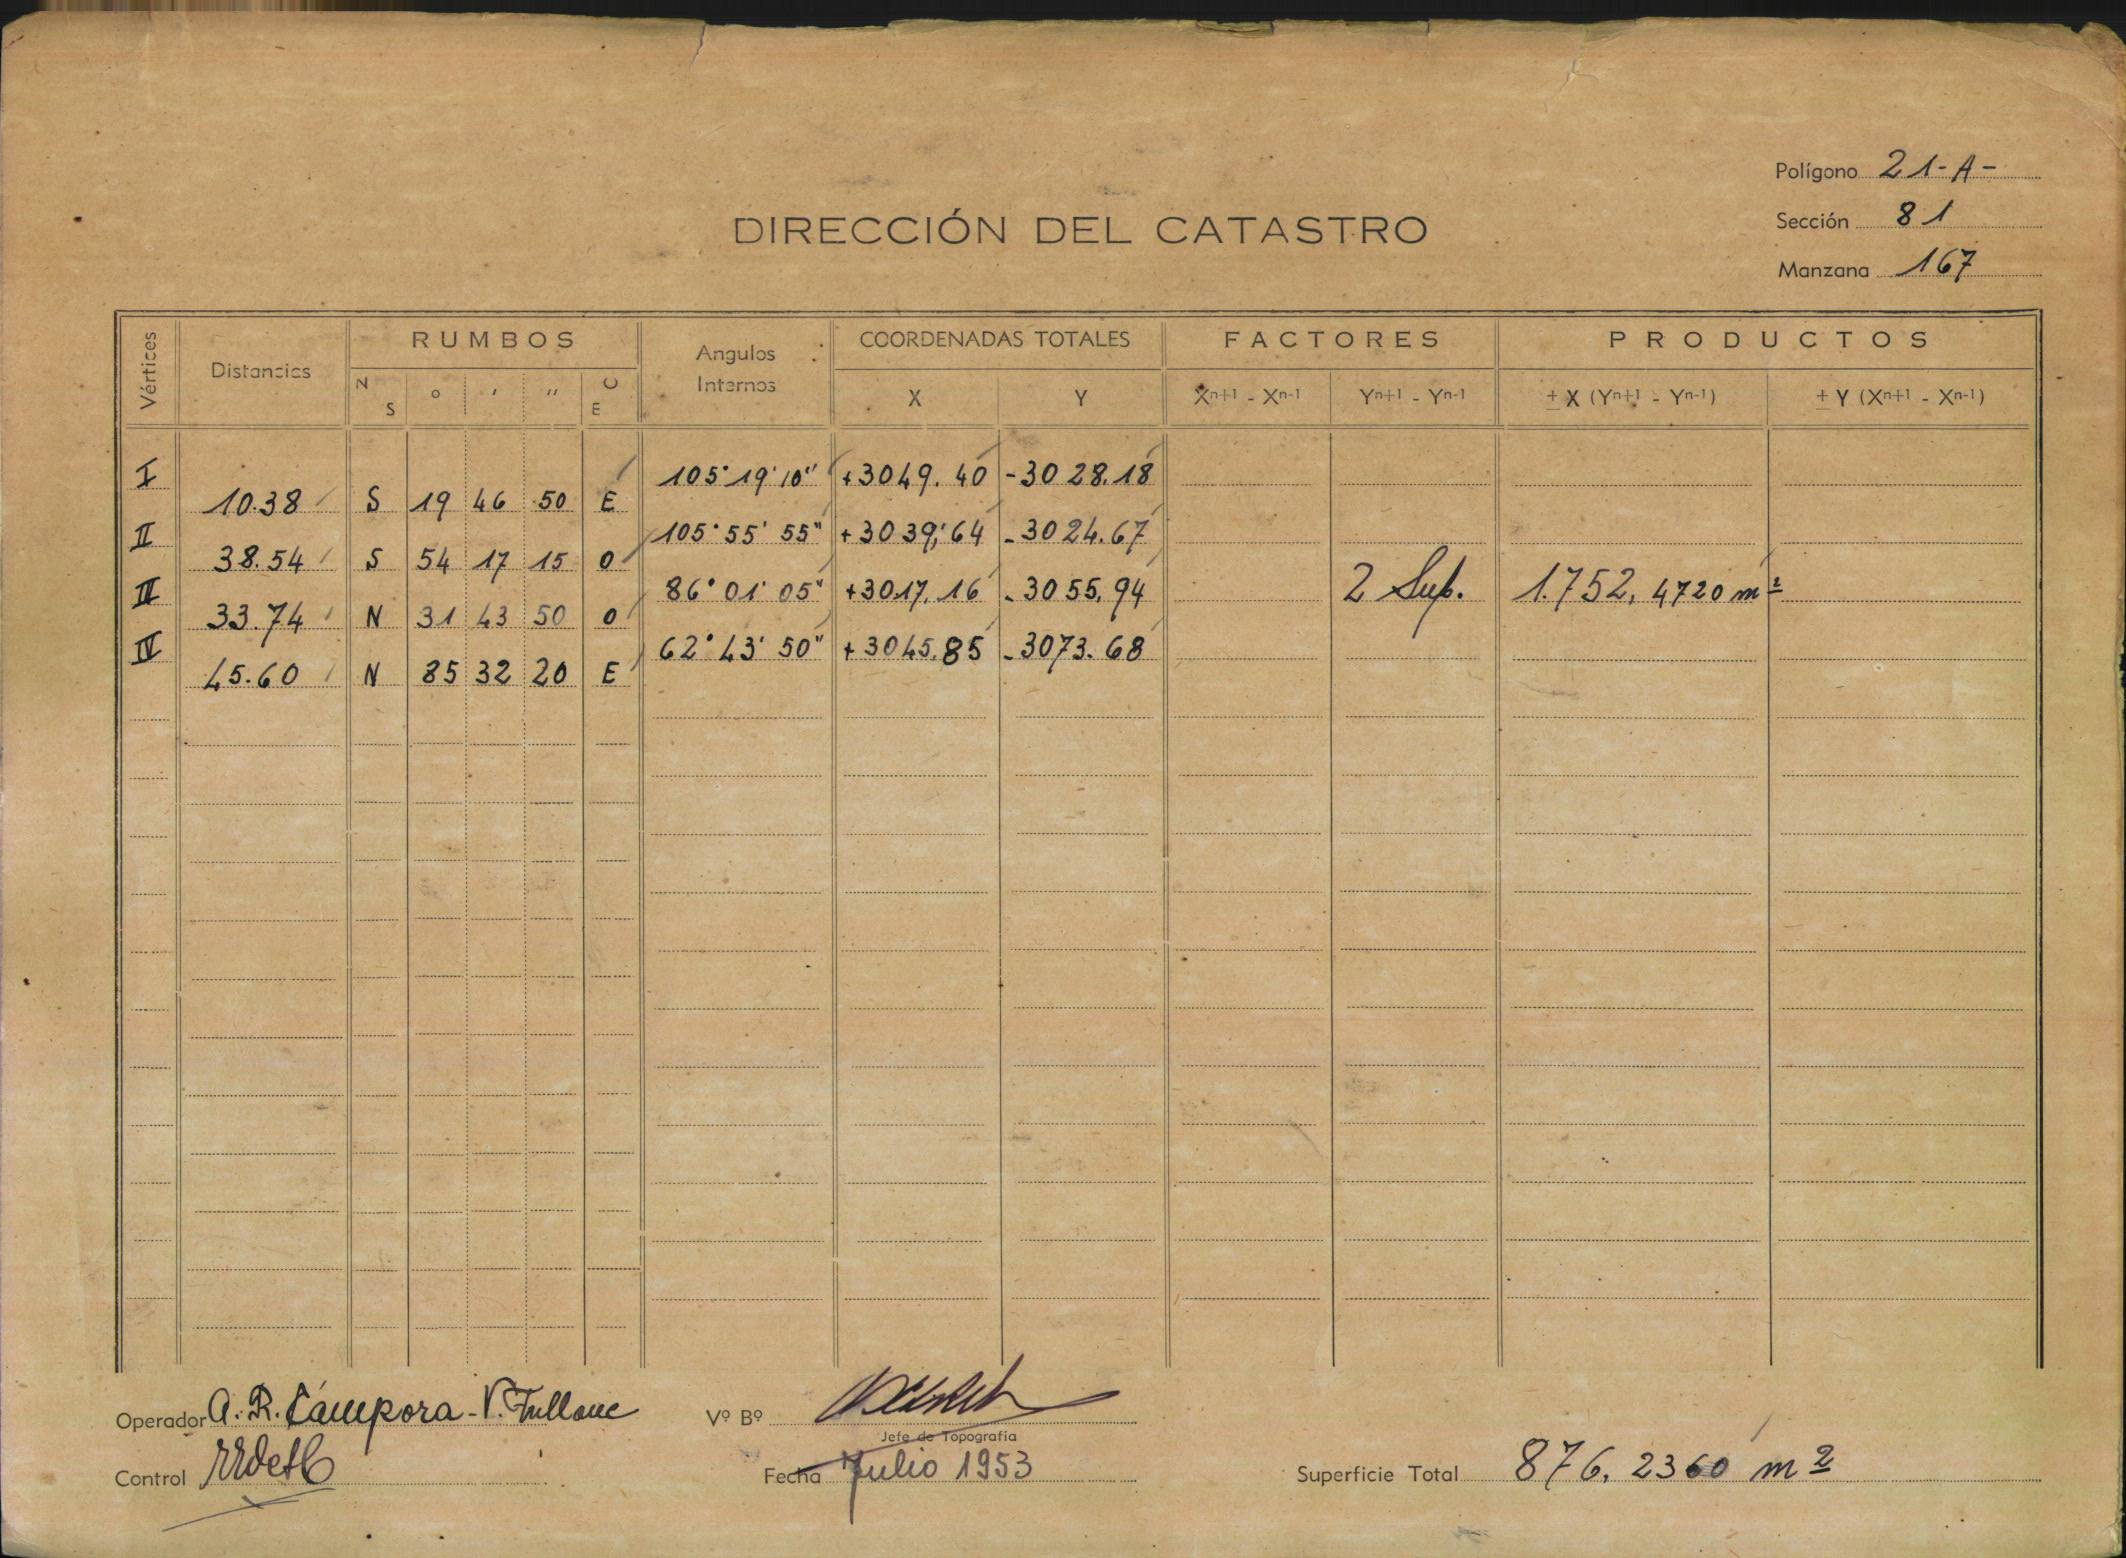 Polígono 21-A-
Sección 81
Manzana 167
DIRECCIÓN DEL CATASTRO
Vértices Distancias RUMBOS Angulos Internos COORDENADAS TOTALES FACTORES PRODUCTOS
N S ° ' " O E X Y Xn+1 - Xn-1 Yn+1 - Yn-1 ± X (Yn+1 - Yn-1) ± Y (Xn+1 - Xn-1)
I 105° 19' 10" +3049.40 -3028.18
10.38 S 19 46 50 E
II 105° 55' 55" +3039.64 -3024.67
38.54 S 54 17 15 O
III 86° 01' 05" +3017.16 -3055.94 2 Sup. 1.752,4720 m²
33.74 N 31 43 50 O
IV 62° 43' 50" +3045.85 -3073.68
45.60 N 85 32 20 E
Operador A. R. Cámpora - V. Fullone Vº Bº
Jefe de Topografía
Control Fecha Julio 1953 Superficie Total 876,2360 m²